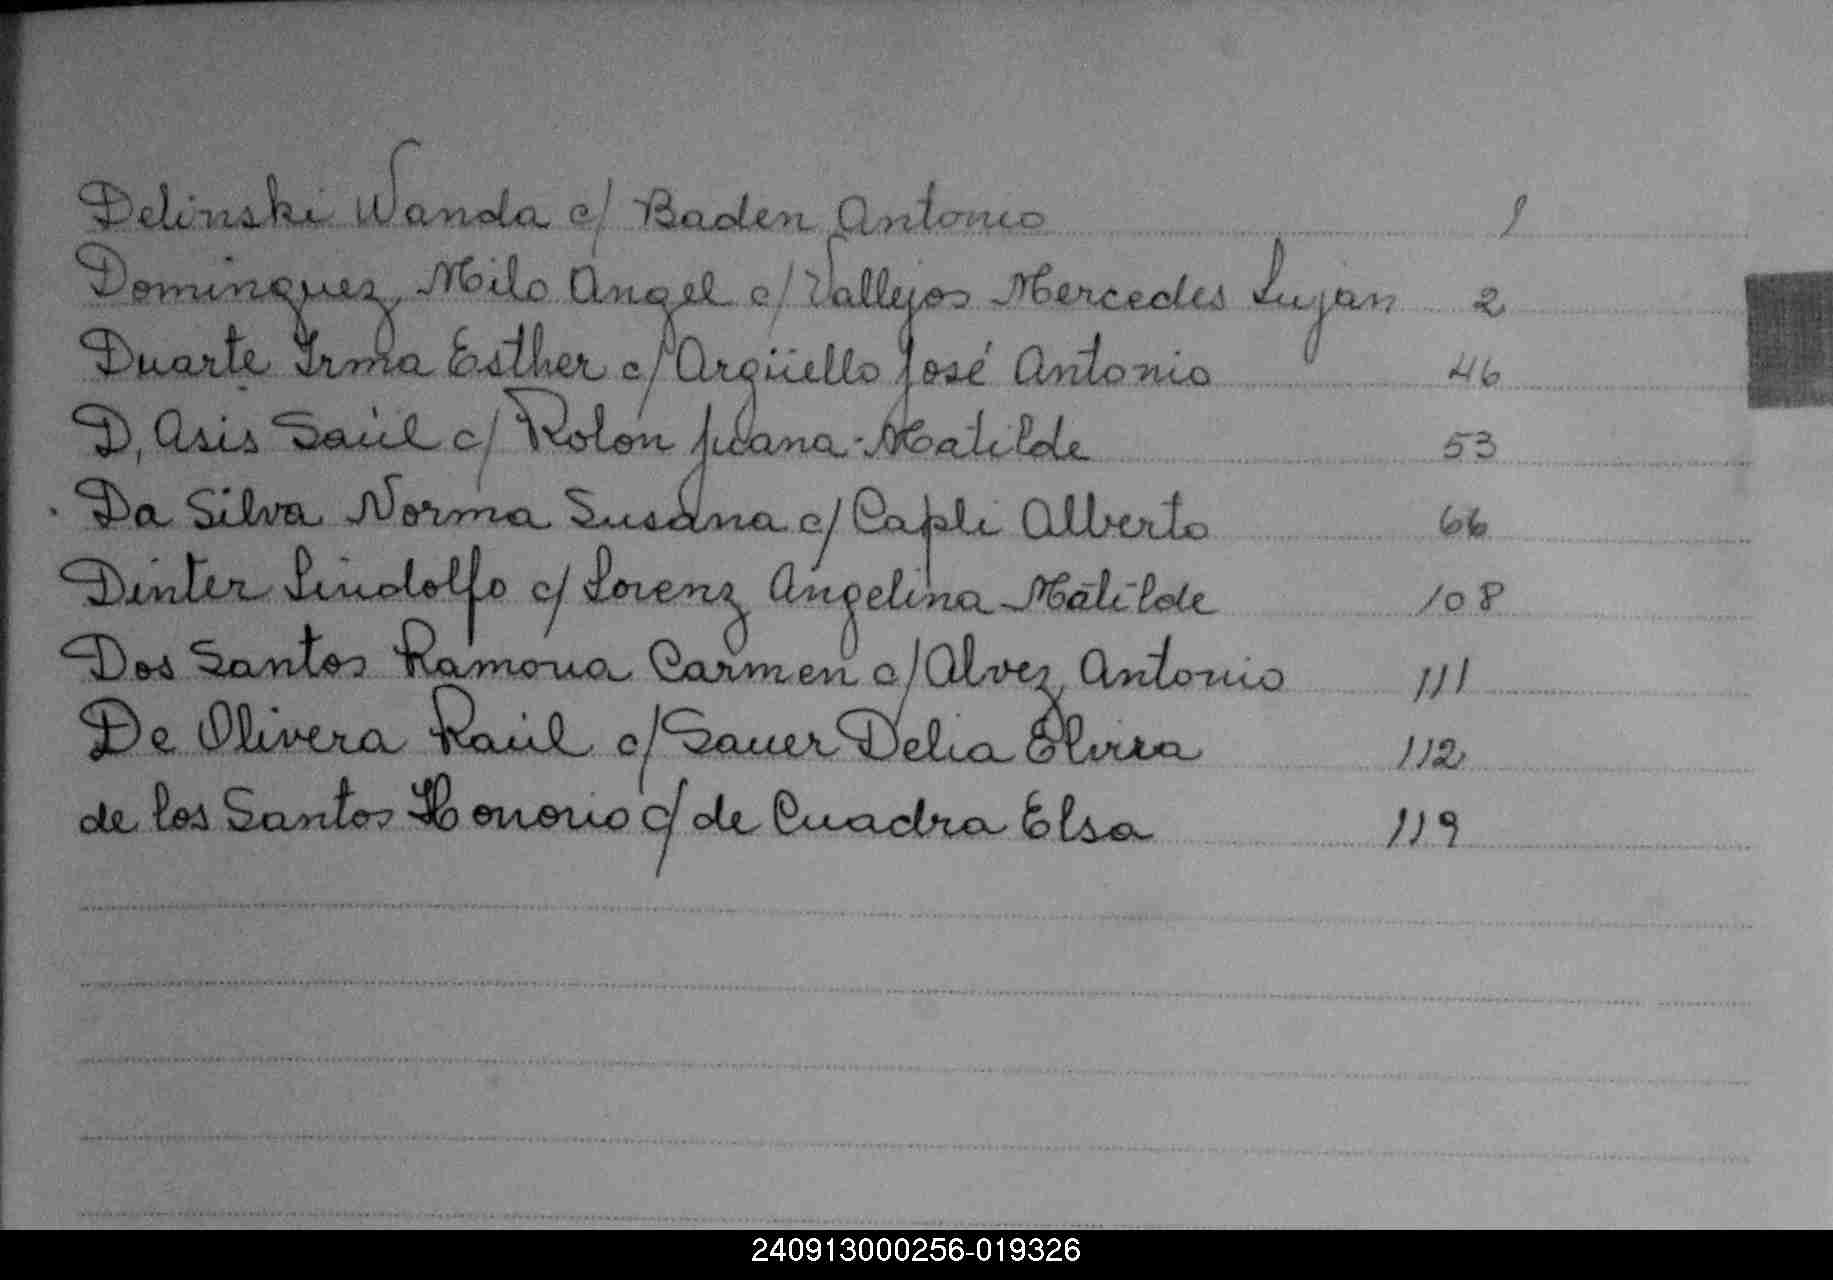 Delinski Wanda c/ Baden Antonio 1
Dominguez, Milo Angel c/ Vallejos Mercedes Lujan 2
Duarte Irma Esther c/ Argüello José Antonio 46
D, Asis Saúl c/ Rolón Juana Matilde 53
Da Silva Norma Susana c/ Capli Alberto 66
Dinter Lindolfo c/ Lorenz Angelina Matilde 108
Dos Santos Ramona Carmen c/ Alvez, Antonio 111
De Olivera Raúl c/ Sauer Delia Elvira 112
de los Santos Honorio c/ de Cuadra Elsa 119
240913000256-019326